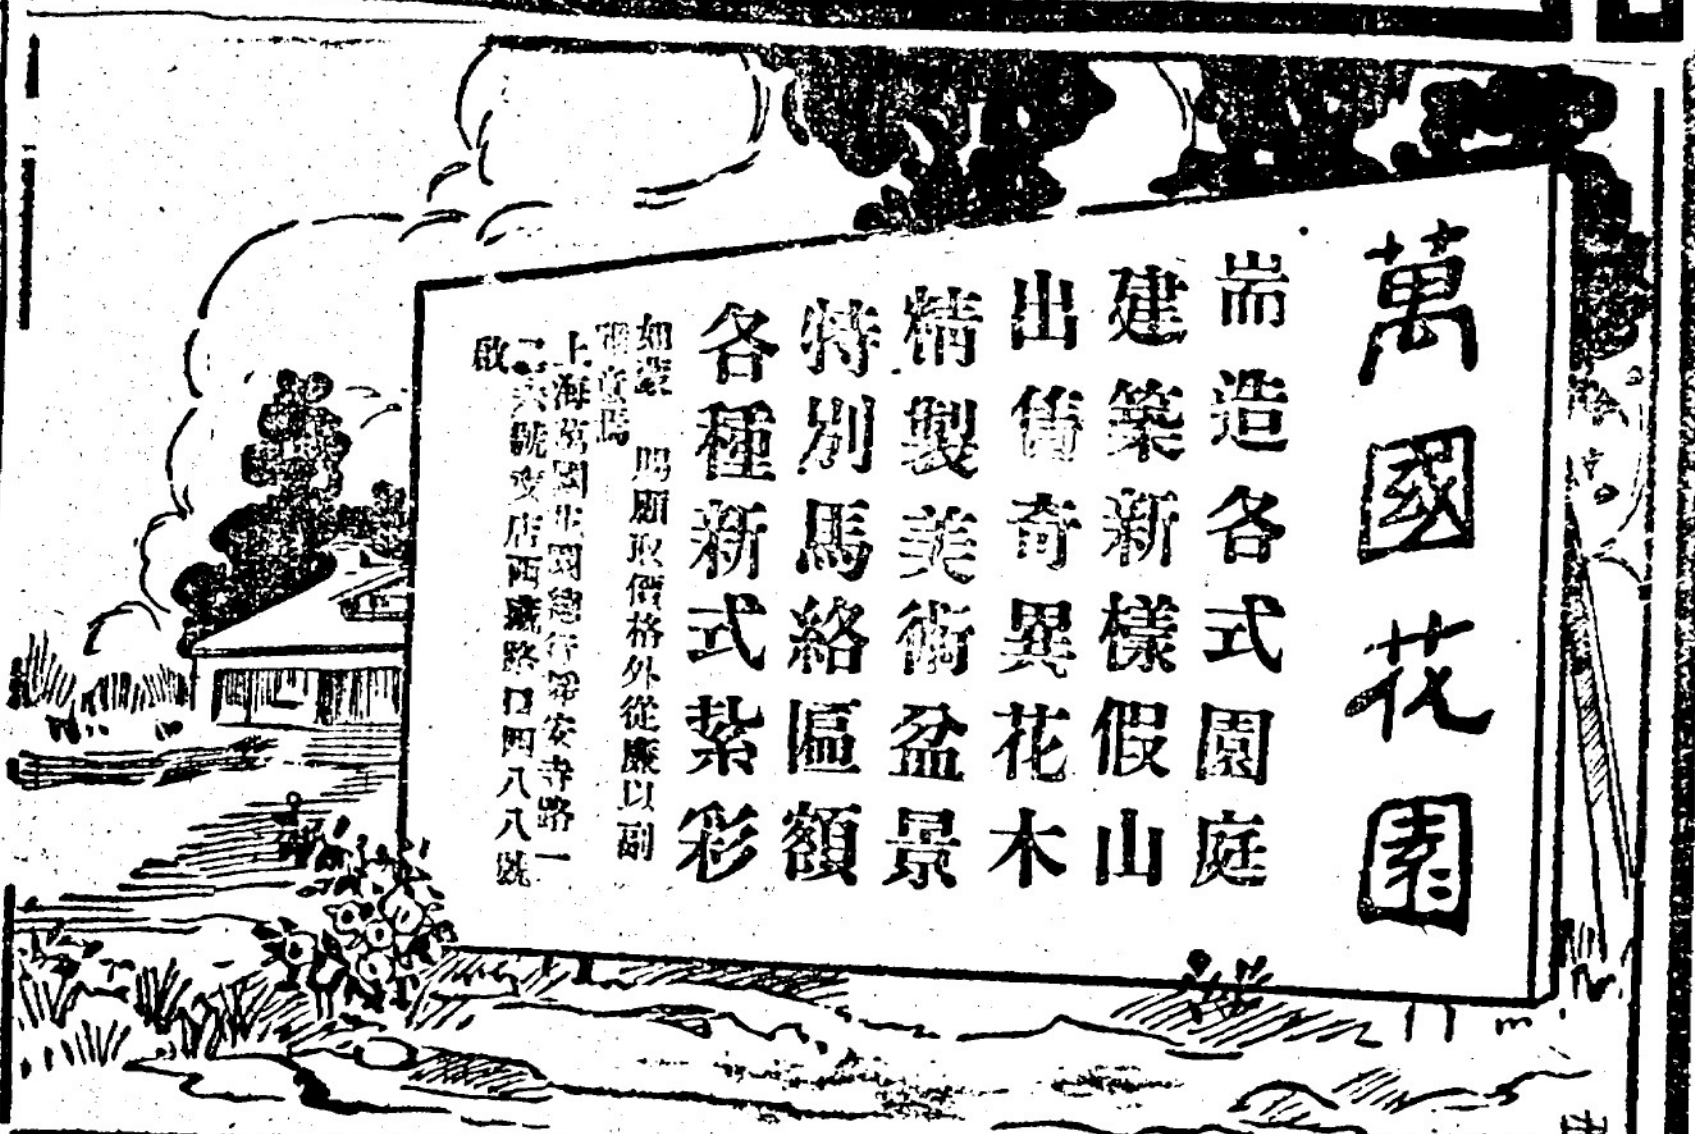 萬國花園
耑造各式園庭
建築新樣假山
出售奇異花木
精製美術盆景
特別馬絡區額
各種新式紮彩
如蒙 賜顧取價格外從廉以副
上海萬國花園總行靜安寺路一
號支店西藏路口四八八號
啟